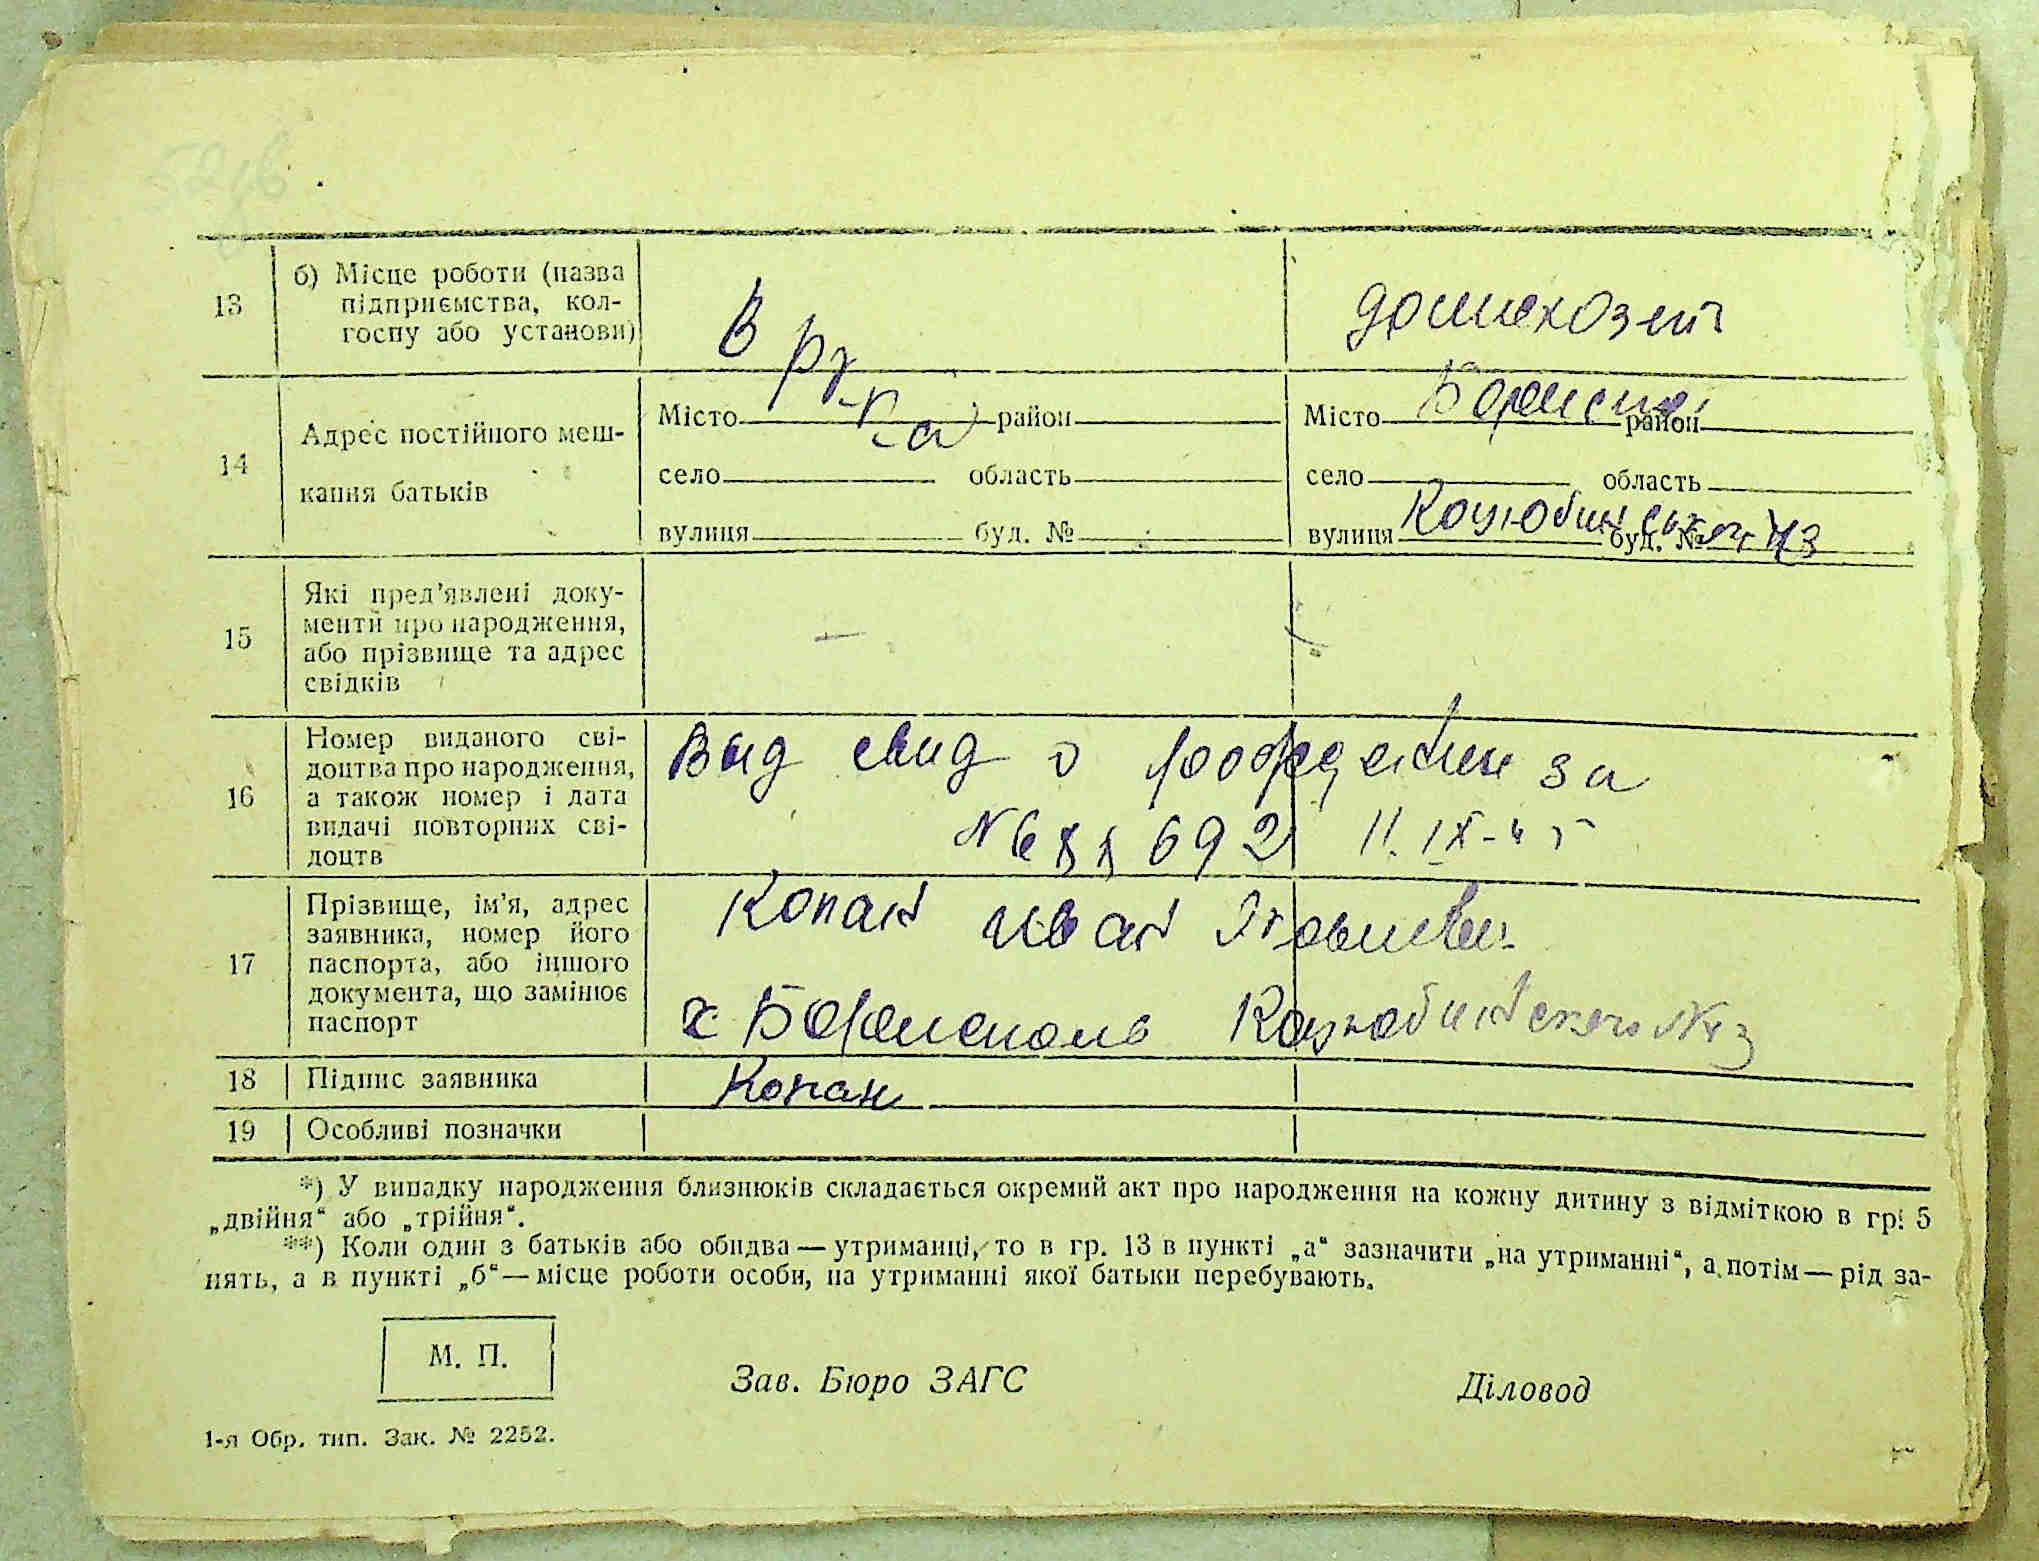 13
б) Місце роботи (назва
підприємства, кол-
госпу або установи)
В РККА
домохоз
14
Адрес постійного меш-
кання батьків
Місто район
село область
вулиця буд. №
Місто район
село область
вулиця буд. №
15
Які пред'явлені доку-
менти про народження,
або прізвище та адрес
свідків
16
Номер виданого сві-
доцтва про народження,
а також номер і дата
видачі повторних сві-
доцтв
Выд свид о за
692 11.IX-45
17
Прізвище, ім'я, адрес
заявника, номер його
паспорта, або іншого
документа, що замінює
паспорт
Копан Иван
Борисполь
18
Підпис заявника
Копан
19
Особливі позначки
*) У випадку народження близнюків складається окремий акт про народження на кожну дитину з відміткою в гр. 5
„двійня“ або „трійня“.
**) Коли один з батьків або обидва — утриманці, то в гр. 13 в пункті „а“ зазначити „на утриманні“, а потім — рід за-
нять, а в пункті „б“ — місце роботи особи, на утриманні якої батьки перебувають.
М. П.
Зав. Бюро ЗАГС
Діловод
1-я Обр. тип. Зак. № 2252.